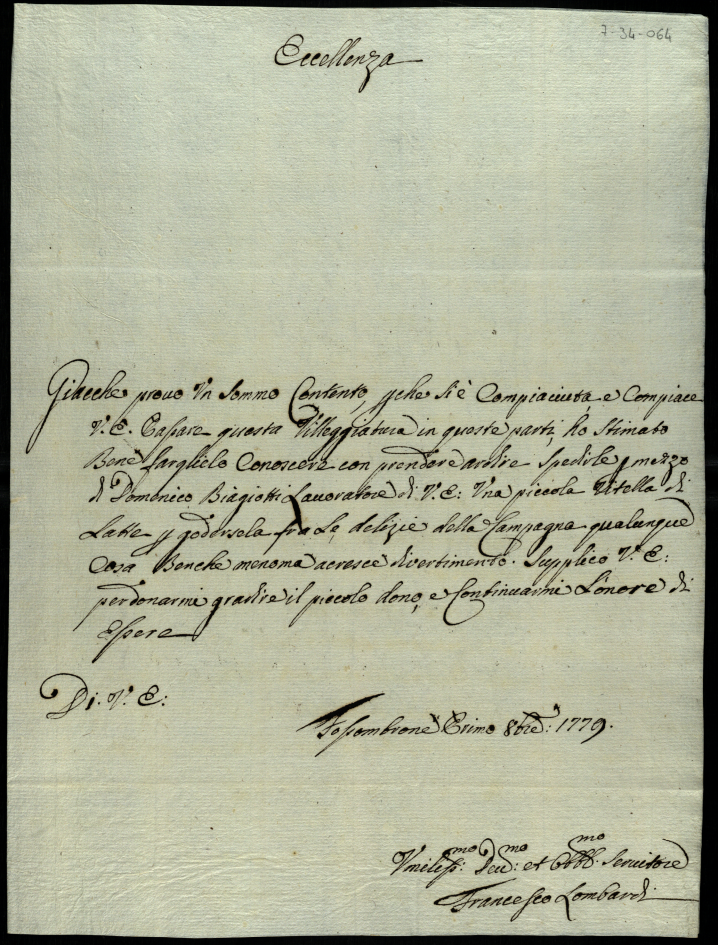 7-34-064
Eccellenza
Giacche provo Vn sommo Contento, pche si è Compiaciuta, e Compiace
V. E. Passare questa Villeggiatura in queste parti, ho stimato
Bene farglielo Conoscere con prendere ardire spedirle p mezzo
di Domenico Biagiotti Lauoratore di V. E: Vna piccola Vitella di
Latte p godersola fra Le delizie della Campagna qualunque
Cosa Benche menoma acresce divertimento. Supplico V. E:
perdonarmi gradire il piccolo dono, e Continuarmi L'onore di
Essere
Di. V. E:
Fossombrone Primo 8bre: 1779.
Vmiliss:mo Deu:mo et Obbl:mo Seruitore
Francesco Lombardi